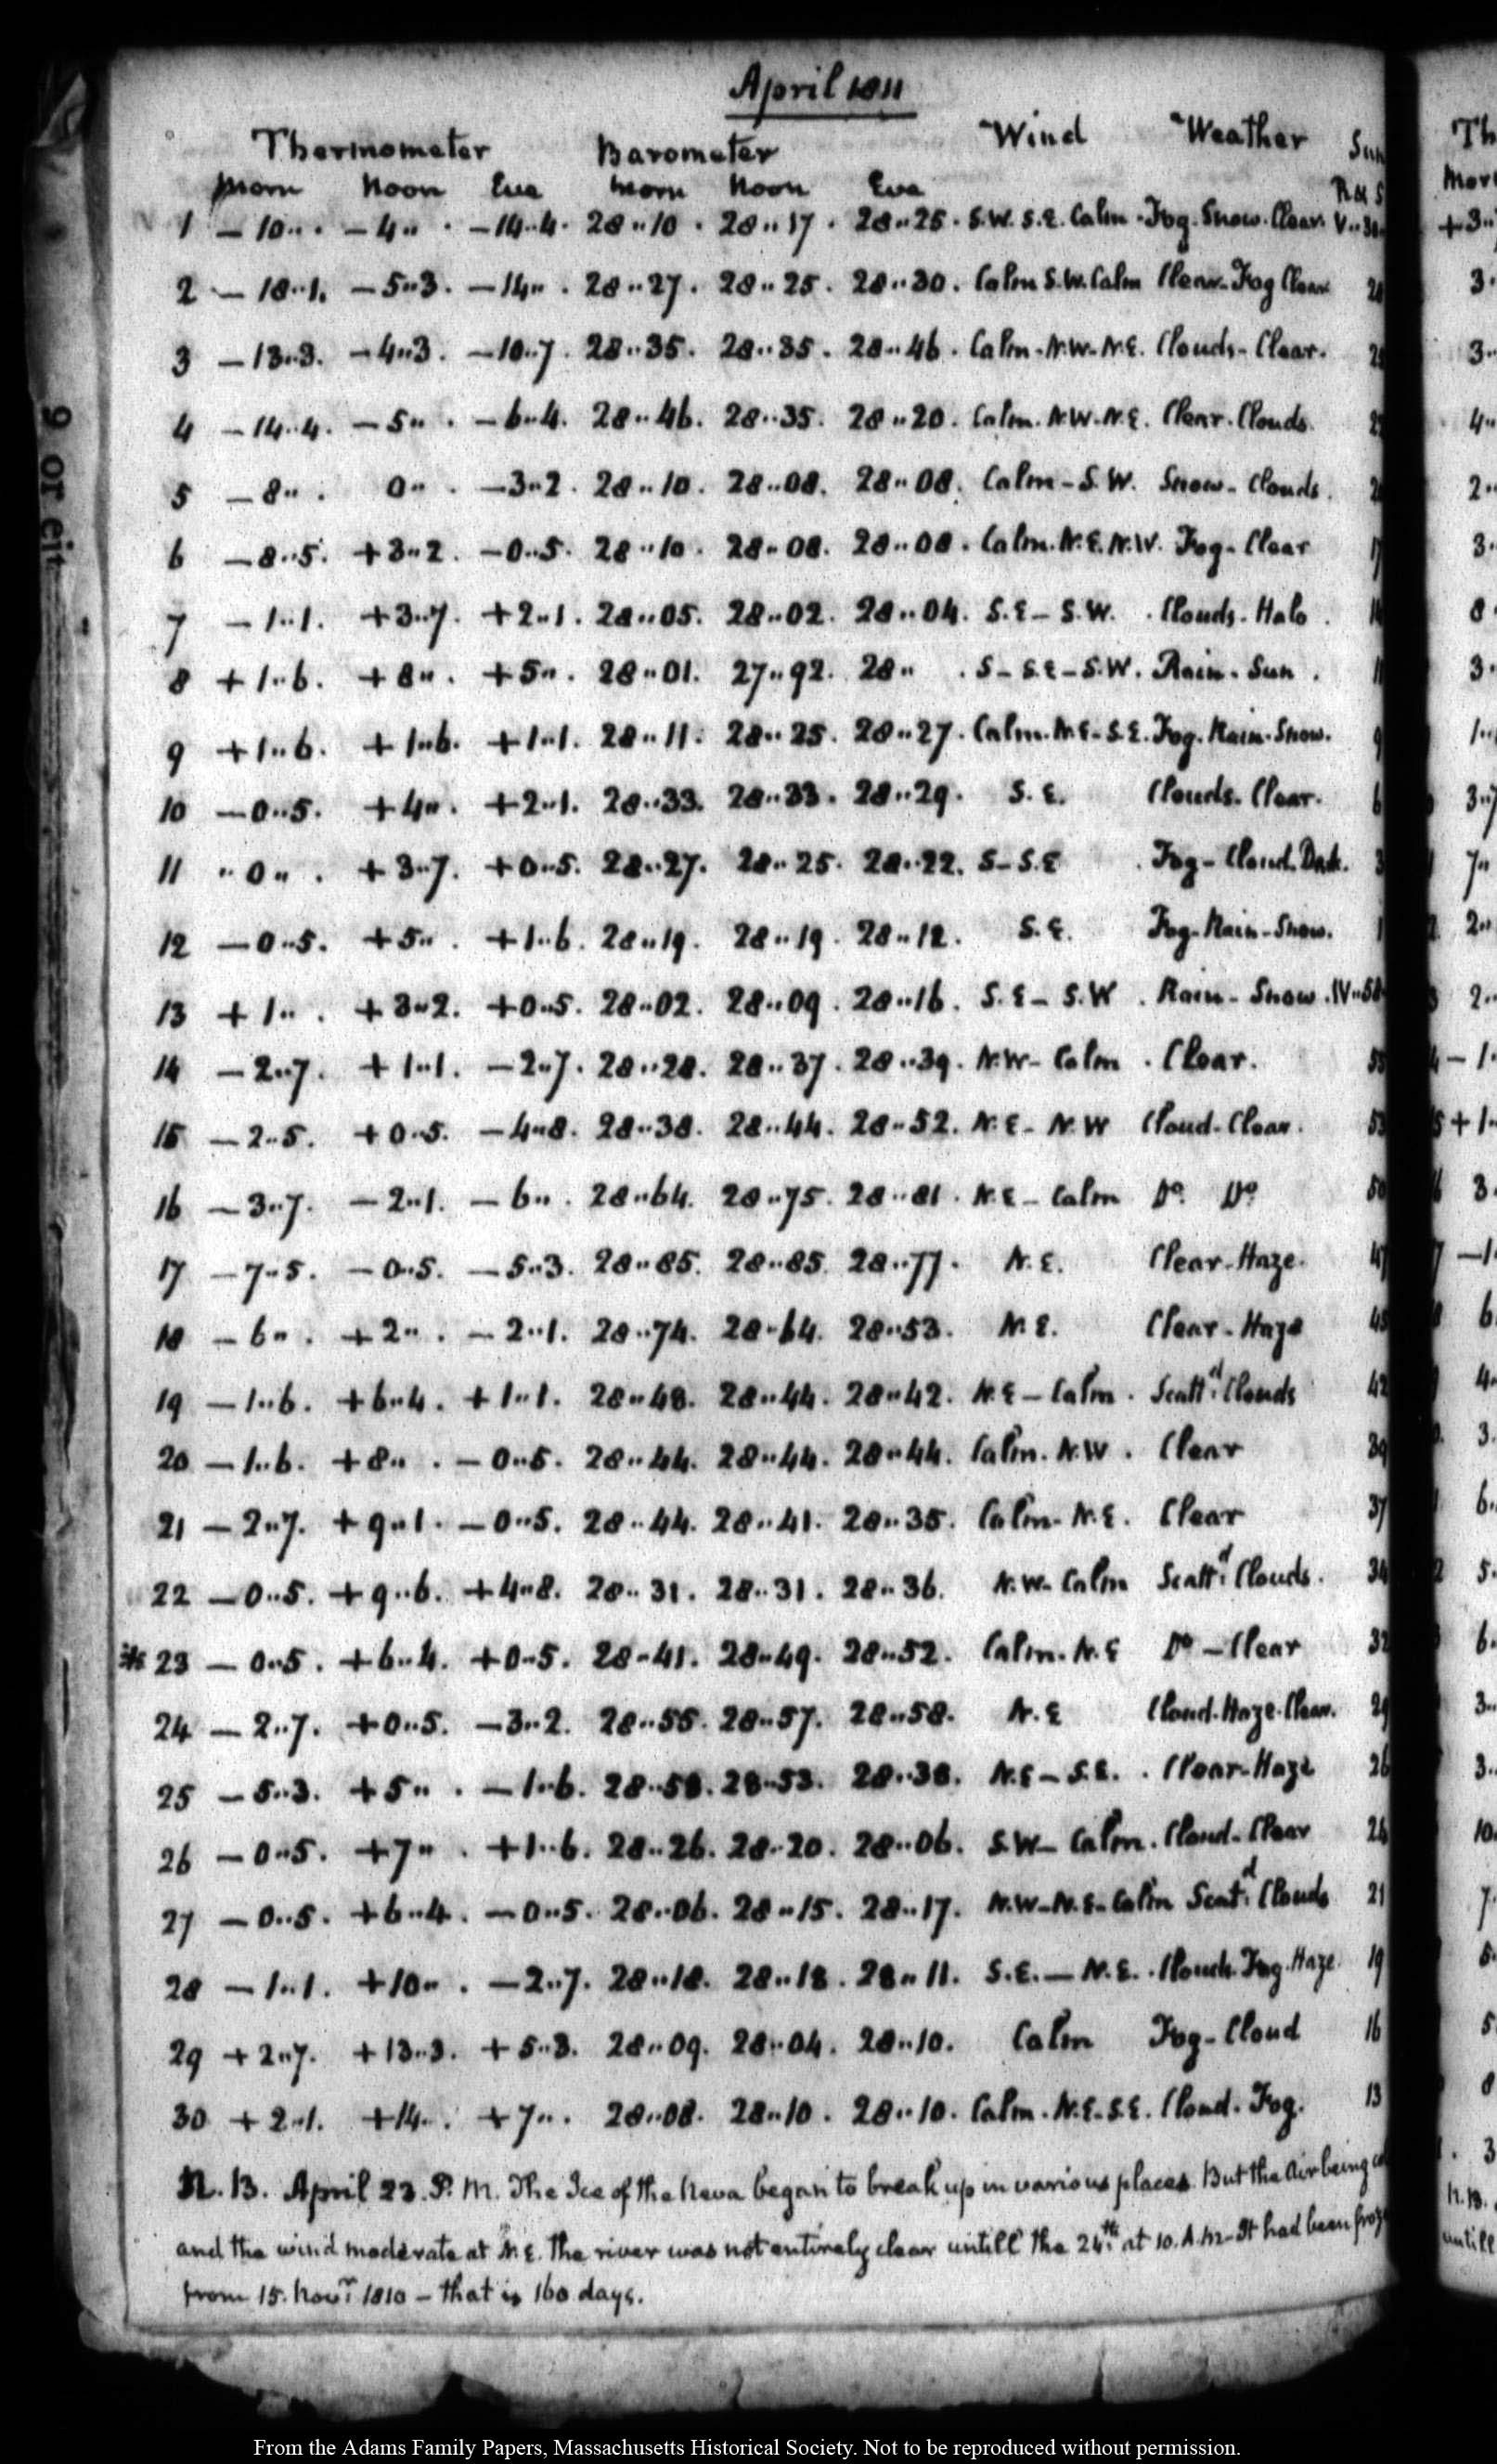 April 1811
Thermometer Barometer Wind Weather Sun
Morn Noon Eve Morn Noon Eve R & S
1 — 10.. . — 4.. . — 14..4. 28..10 . 28..17 . 28..25 . S.W. S.E. Calm . Fog. Snow. Clear. V..30
2 — 18..1. — 5..3. — 14.. . 28..27. 28..25. 28..30. Calm S.W. Calm Clear. Fog Clear
3 — 13..3. — 4..3. — 10..7. 28..35. 28..35. 28..46. Calm - N.W - N.E. Clouds - Clear.
4 — 14..4. — 5.. . — 6..4. 28..46. 28..35. 28..20. Calm. N.W - N.E. Clear. Clouds.
5 — 8.. . 0.. . — 3..2. 28..10. 28..08. 28..08. Calm - S.W. Snow - Clouds.
6 — 8..5. + 3..2. — 0..5. 28..10. 28..08. 28..08. Calm. N.E. N.W. Fog - Clear 17
7 — 1..1. + 3..7. + 2..1. 28..05. 28..02. 28..04. S.E — S.W. . Clouds. Halo . 14
8 + 1..6. + 8.. . + 5.. . 28..01. 27..92. 28.. . S — S.E — S.W. Rain. Sun . 11
9 + 1..6. + 1..6. + 1..1. 28..11. 28..25. 28..27. Calm. N.E - S.E. Fog. Rain. Snow. 9
10 — 0..5. + 4.. . + 2..1. 28..33. 28..33. 28..29. S.E. Clouds. Clear. 6
11 .. 0.. . + 3..7. + 0..5. 28..27. 28..25. 28..22. S - S.E . Fog - Cloud. Dark. 3
12 — 0..5. + 5.. . + 1..6. 28..19. 28..19. 28..12. S.E. Fog - Rain - Snow. 1
13 + 1.. . + 3..2. + 0..5. 28..02. 28..09. 28..16. S.E — S.W . Rain - Snow . IV..58
14 — 2..7. + 1..1. — 2..7. 28..28. 28..37. 28..39. N.W - Calm . Clear. 55
15 — 2..5. + 0..5. — 4..8. 28..38. 28..44. 28..52. N.E - N.W Cloud - Clear. 53
16 — 3..7. — 2..1. — 6.. . 28..64. 28..75. 28..81. N.E - Calm Do. Do 50
17 — 7..5. — 0..5. — 5..3. 28..85. 28..85. 28..77. N.E. Clear - Haze. 47
18 — 6.. . + 2.. . — 2..1. 28..74. 28..64. 28..53. N.E. Clear - Haze 45
19 — 1..6. + 6..4. + 1..1. 28..48. 28..44. 28..42. N.E — Calm . Scattd. Clouds 42
20 — 1..6. + 8.. . — 0..5. 28..44. 28..44. 28..44. Calm. N.W . Clear 39
21 — 2..7. + 9..1. — 0..5. 28..44. 28..41. 28..35. Calm - N.E. Clear 37
22 — 0..5. + 9..6. + 4..8. 28..31. 28..31. 28..36. N.W - Calm Scattd. Clouds. 34
23 — 0..5. + 6..4. + 0..5. 28..41. 28..49. 28..52. Calm. N.E Do — Clear 32
24 — 2..7. + 0..5. — 3..2. 28..55. 28..57. 28..58. N.E Cloud. Haze. Clear. 29
25 — 5..3. + 5.. . — 1..6. 28..58. 28..53. 28..38. N.E — S.E. . Clear - Haze 26
26 — 0..5. + 7.. . + 1..6. 28..26. 28..20. 28..06. S.W — Calm. Cloud - Clear 24
27 — 0..5. + 6..4. — 0..5. 28..06. 28..15. 28..17. N.W — N.E - Calm Scatd. Clouds 21
28 — 1..1. + 10.. . — 2..7. 28..18. 28..18. 28..11. S.E. — N.E. . Clouds. Fog. Haze 19
29 + 2..7. + 13..3. + 5..3. 28..09. 28..04. 28..10. Calm Fog - Cloud 16
30 + 2..1. + 14.. . + 7.. . 28..08. 28..10. 28..10. Calm. N.E. S.E. Cloud. Fog. 13
N.B. April 23. P.M. The Ice of the Neva began to break up in various places. But the Air being
and the wind moderate at N.E. the river was not entirely clear untill the 24th. at 10. A.M - It had been
from 15. Novr. 1810 — that is 160 days.
9 or eit
From the Adams Family Papers, Massachusetts Historical Society. Not to be reproduced without permission.